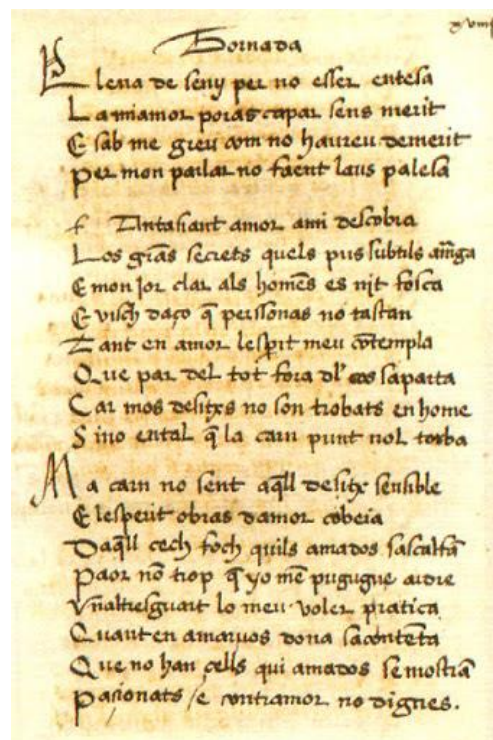 Tornada
Llena de seny per no esser entesa
La miamor poras capar sens merit
E sab me greu com no haureu demerit
Per mon parlar no faent laus palesa
f Antasiant amor ami descobra
Los grãs secrets quels pus subtils amãga
E mon jor clar als homẽs es nit fosca
E visch daço q̃ perssonas no tastan
Tant en amor lesp̃it meu cõtempla
Que par del tot fora dl' cos saparta
Car mos desitxs no son trobats en home
Sino ental q̃ la carn punt nol torba
Ma carn no sent aq̃ll desitx sensible
E lesperit obras damor cobeia
Daq̃ll cech foch quils amados sascalfã
Paor nõ trop q̃ yo mẽ pugugue ardre
Vñaltresguart lo meu voler pratica
Quant en amarvos dona sacontẽta
Que no han cells qui amados se mostrã
Pacionats / e contramor no dignes.